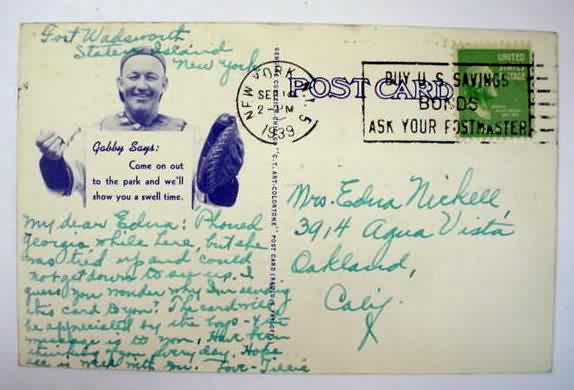 Fort Wadsworth
Staten Island
New York
Gabby Says:
Come on out
to the park and we'll
show you a swell time.
My dear Edna: Phoned
Georgia while here, but she
was tied up and could
not get down to see us. I
guess you wonder why I'm sending
this card to you? The card will
be appreciated by the boys - & the
message is to you, Have been
thinking of you every day. Hope
all is well with you. Love - Tillie
GENUINE CURTEICH-CHICAGO "C.T. ART-COLORTONE" POST CARD
NEW YORK, N.Y. 5
SEP 14
2 PM
1939
POST CARD
BUY U.S. SAVINGS
BONDS
ASK YOUR POSTMASTER
UNITED
STATES
POSTAGE
Mrs. Edna Nickell,
3914 Agua Vista
Oakland,
Calif.